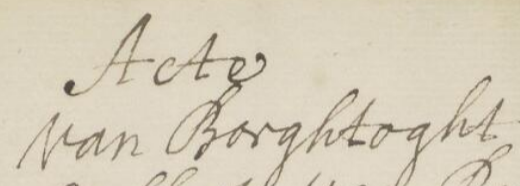 Acte
van Borghtoght